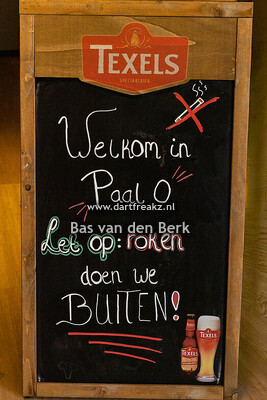 TEXELS
SPECIAALBIER
Welkom in
Paal 0
www.dartfreakz.nl
Bas van den Berk
Let op: roken
doen we
BUITEN!
TEXELS
TEXELS